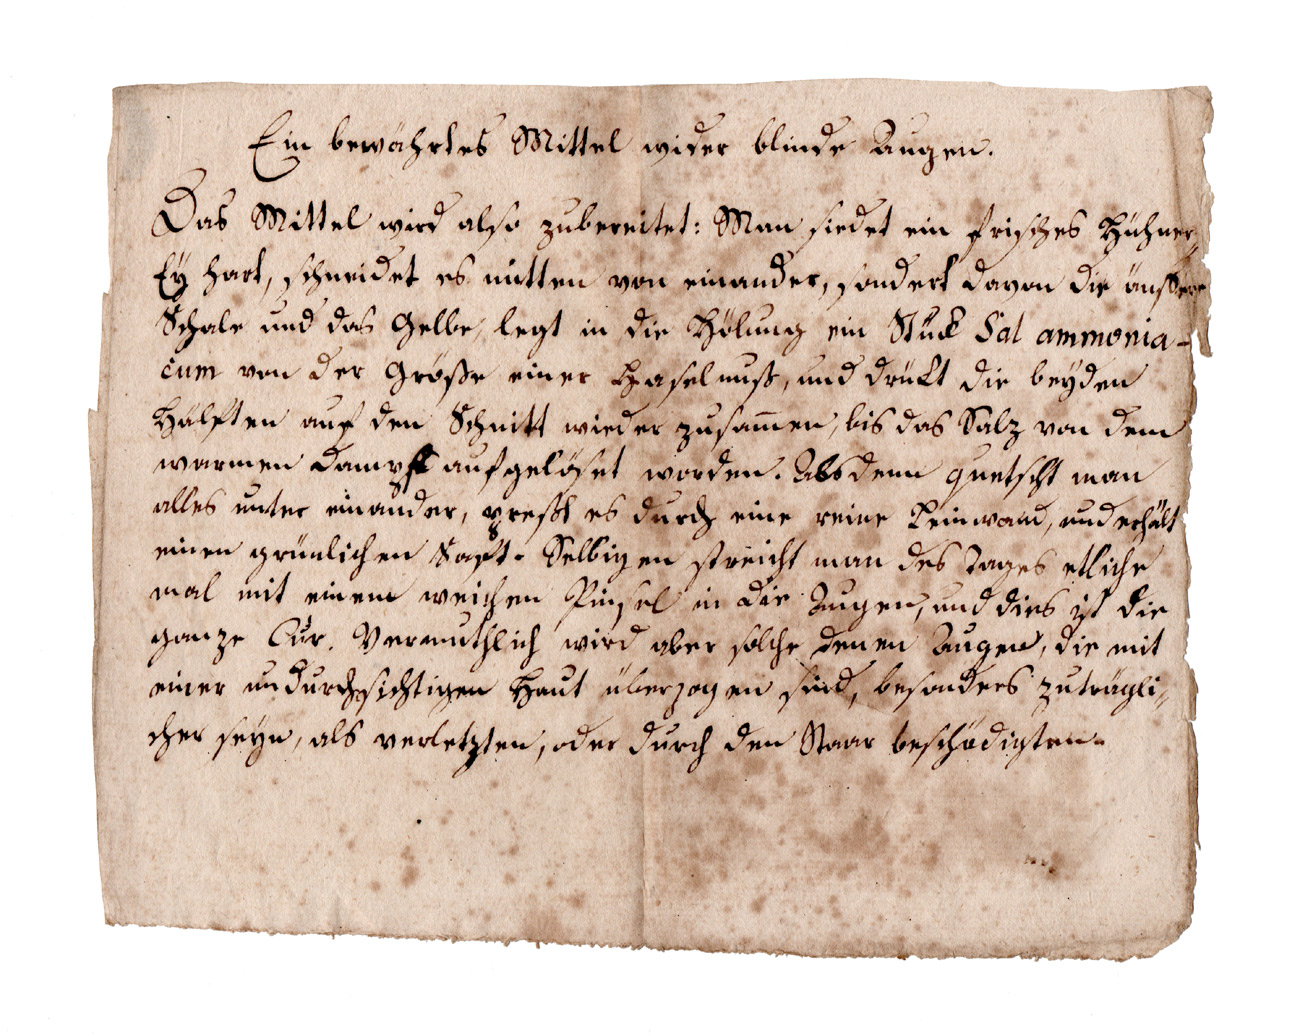 Ein bewährtes Mittel wider blinde Augen.
Das Mittel wird also zubereitet: Man siedet ein frisches Hühner-
Ey hart, schneidet es mitten von einander, sondert davon die äussere
Schale und das Gelbe, legt in die Hölung ein Stück Sal ammonia-
cum von der Größe einer Haselnuß, und drückt die beyden
Hälften auf den Schnitt wieder zusam̅en, bis das Salz von dem
warmen Dampf aufgelöset worden. Alsdenn quetscht man
alles unter einander, preßt es durch eine reine Leinwand, und erhält
einen grünlichen Saft. Selbigen streicht man des Tages etliche
mal mit einem weichen Pinsel in die Augen, und dies ist die
ganze Cur. Vermuthlich wird aber solche denen Augen, die mit
einer undurchsichtigen Haut überzogen sind, besonders zuträgli-
cher seyn, als verletzten, oder durch den Staar beschädigten.